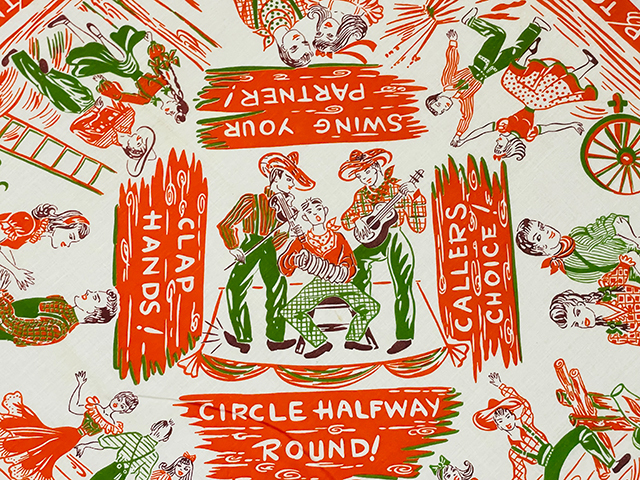 SWING YOUR
PARTNER!
CLAP
HANDS!
CALLERS
CHOICE!
CIRCLE HALFWAY
ROUND!